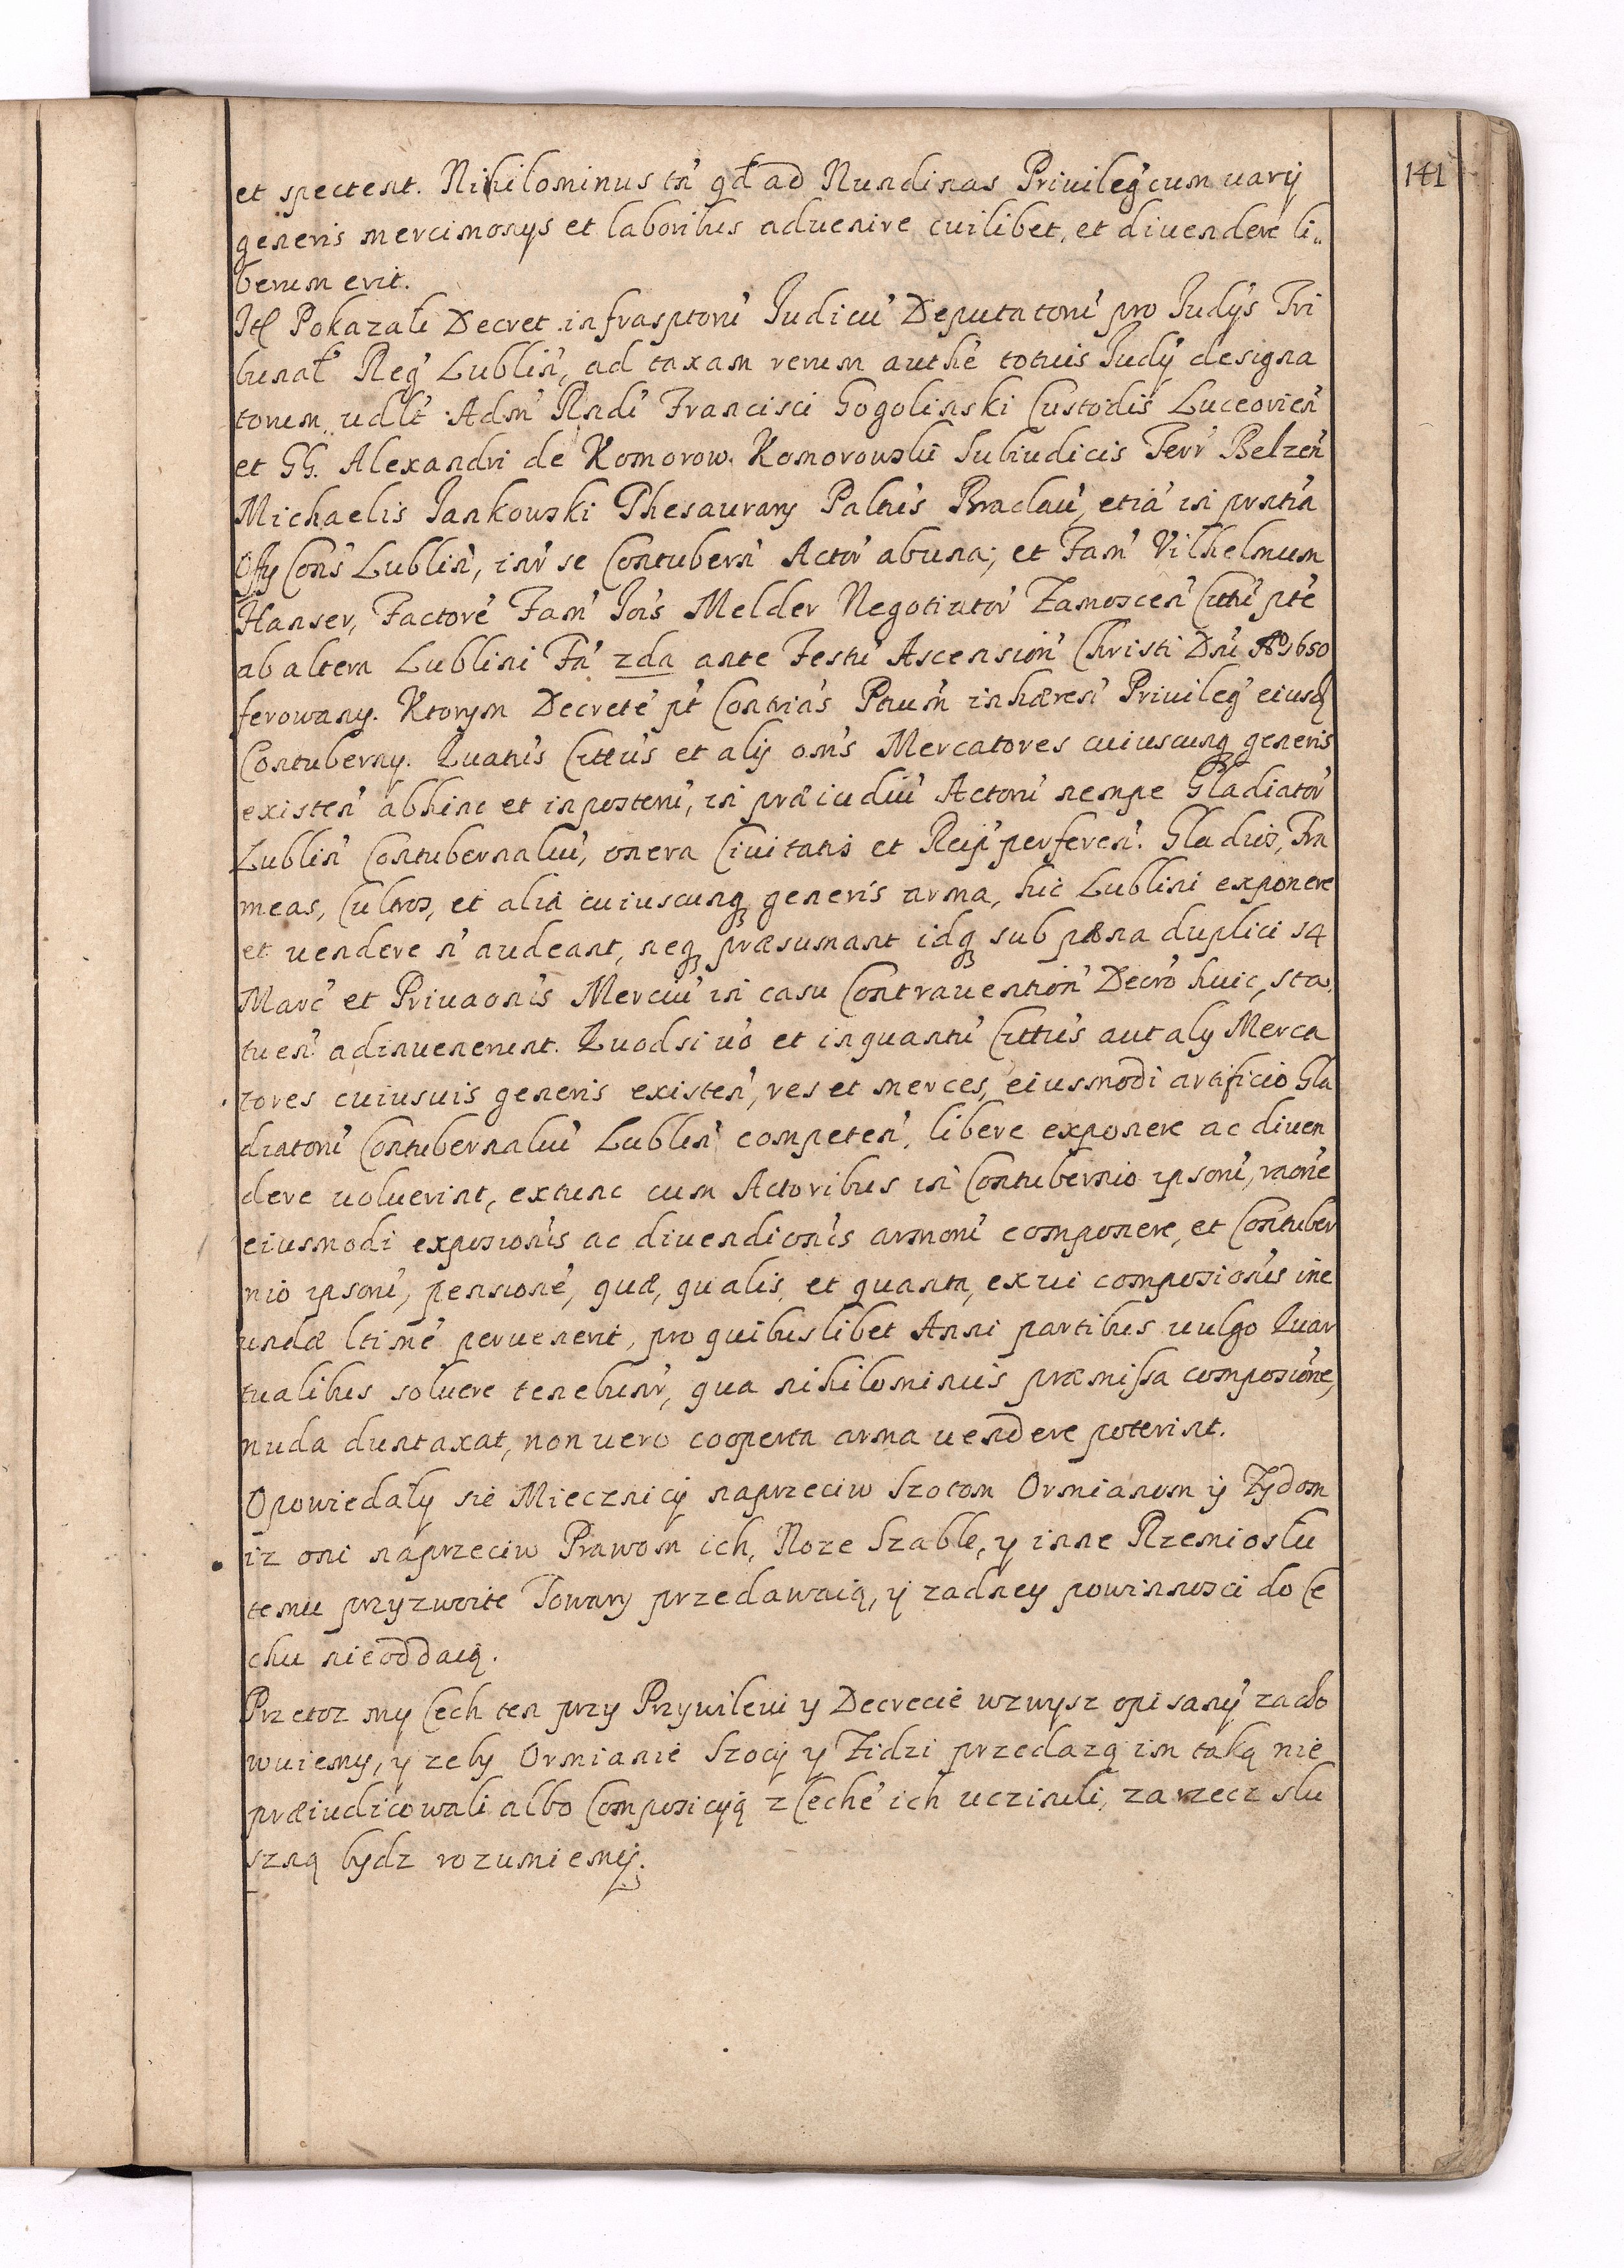 141
et spectent. Nihilominus tn̄ qd ad Nundinas Privileg' cum varÿ
generis mercimonys et laboribus advenire cuilibet, et divendere li„
berum erit.
Pokazali Decret infrasptoru' Judicu' Deputatoru' pro Judÿs Tri
bunał Reg' Lublin', ad taxam rerum authe' totius Judÿ designa
torum, udlt Adm' Rndi' Francisci Gogolinski Custodis Luceorien'
et GG. Alexandri de Komorow Komorowski Subiudicis Terr' Belzen'
Michaelis Jankowski Thesaurary Paltus' Braclau', etiā in pnti'a
Offy Cons' Lublin', intr' se Contubern' Actor' ab una; et Fam' Vilhelmum
Hanser, Factore' Fam' Jois Melder Negotiator' Zamoscen' Citti' pte'
ab altera Lublini Fa' 2da ante Festu' Ascension' Christi Dni' Aº 1650
ferowany. Ktorym Decrete' pt' Contrias' Ptium' inhæren' Privileg' eiusd
Contuberny. Quatus' Cittus' et alÿ oms' Mercatores cuiuscunq generis
existen' abhinc et inposteru', in præiudiu' Actoru' nempe Gladiator'
Lublin' Contubernaliu', onera Civitatis et Reip' perferen'. Gladios, Fra
meas, Cultros, et alia cuiuscunq generis arma, hic Lublini exponere
et vendere n' audeant, neq præsumant idq sub pæna duplici 14
Marc' et Privaonis' Merciu' in casu Contravention' Decro' huic, sta
tuen' adinvenerunt. Quodsi vo' et inquantu' Cittus' aut aly Merca
tores cuiusvis generis existen', res et merces, eiusmodi artificio Gla
diatoru' Contubernaliu' Lublin' competen', libere exponere ac diven
dere voluerint, extunc cum Actoribus in Contubernio ipsoru', raone'
eiusmodi exposionis' ac divendionis' armoru' componere, et Contuber
nio ipsoru', pensione', quæ, qualis, et quanta, ex vi composionis' ine
undæ ltime' pervenerit, pro quibuslibet Anni partibus vulgo Quar
tualibus solvere tenebunr', qua nihilominus præmissa composione',
nuda duntaxat, non vero cooperta arma vendere poterint.
Opowiedały sie Miecznicy naprzeciw Szotom Ormianom ÿ Zydom
iz oni naprzeciw Prawom ich, Noze Szable, y inne Rzemiosłu
temu przyzwoite Towary przedawaią, y zadney powinnosci do Ce
chu nieoddaią.
Przetoz my Cech ten przy Przywileiu y Decrecie wzwysz opisanÿ zacho
wuiemy, y zeby Ormianie Szoci y Zidzi przedazą im taką nie
præiudicowali albo Composicyią z Cechē ich uczinili, za rzecz slu
szną bydz rozumiemÿ.